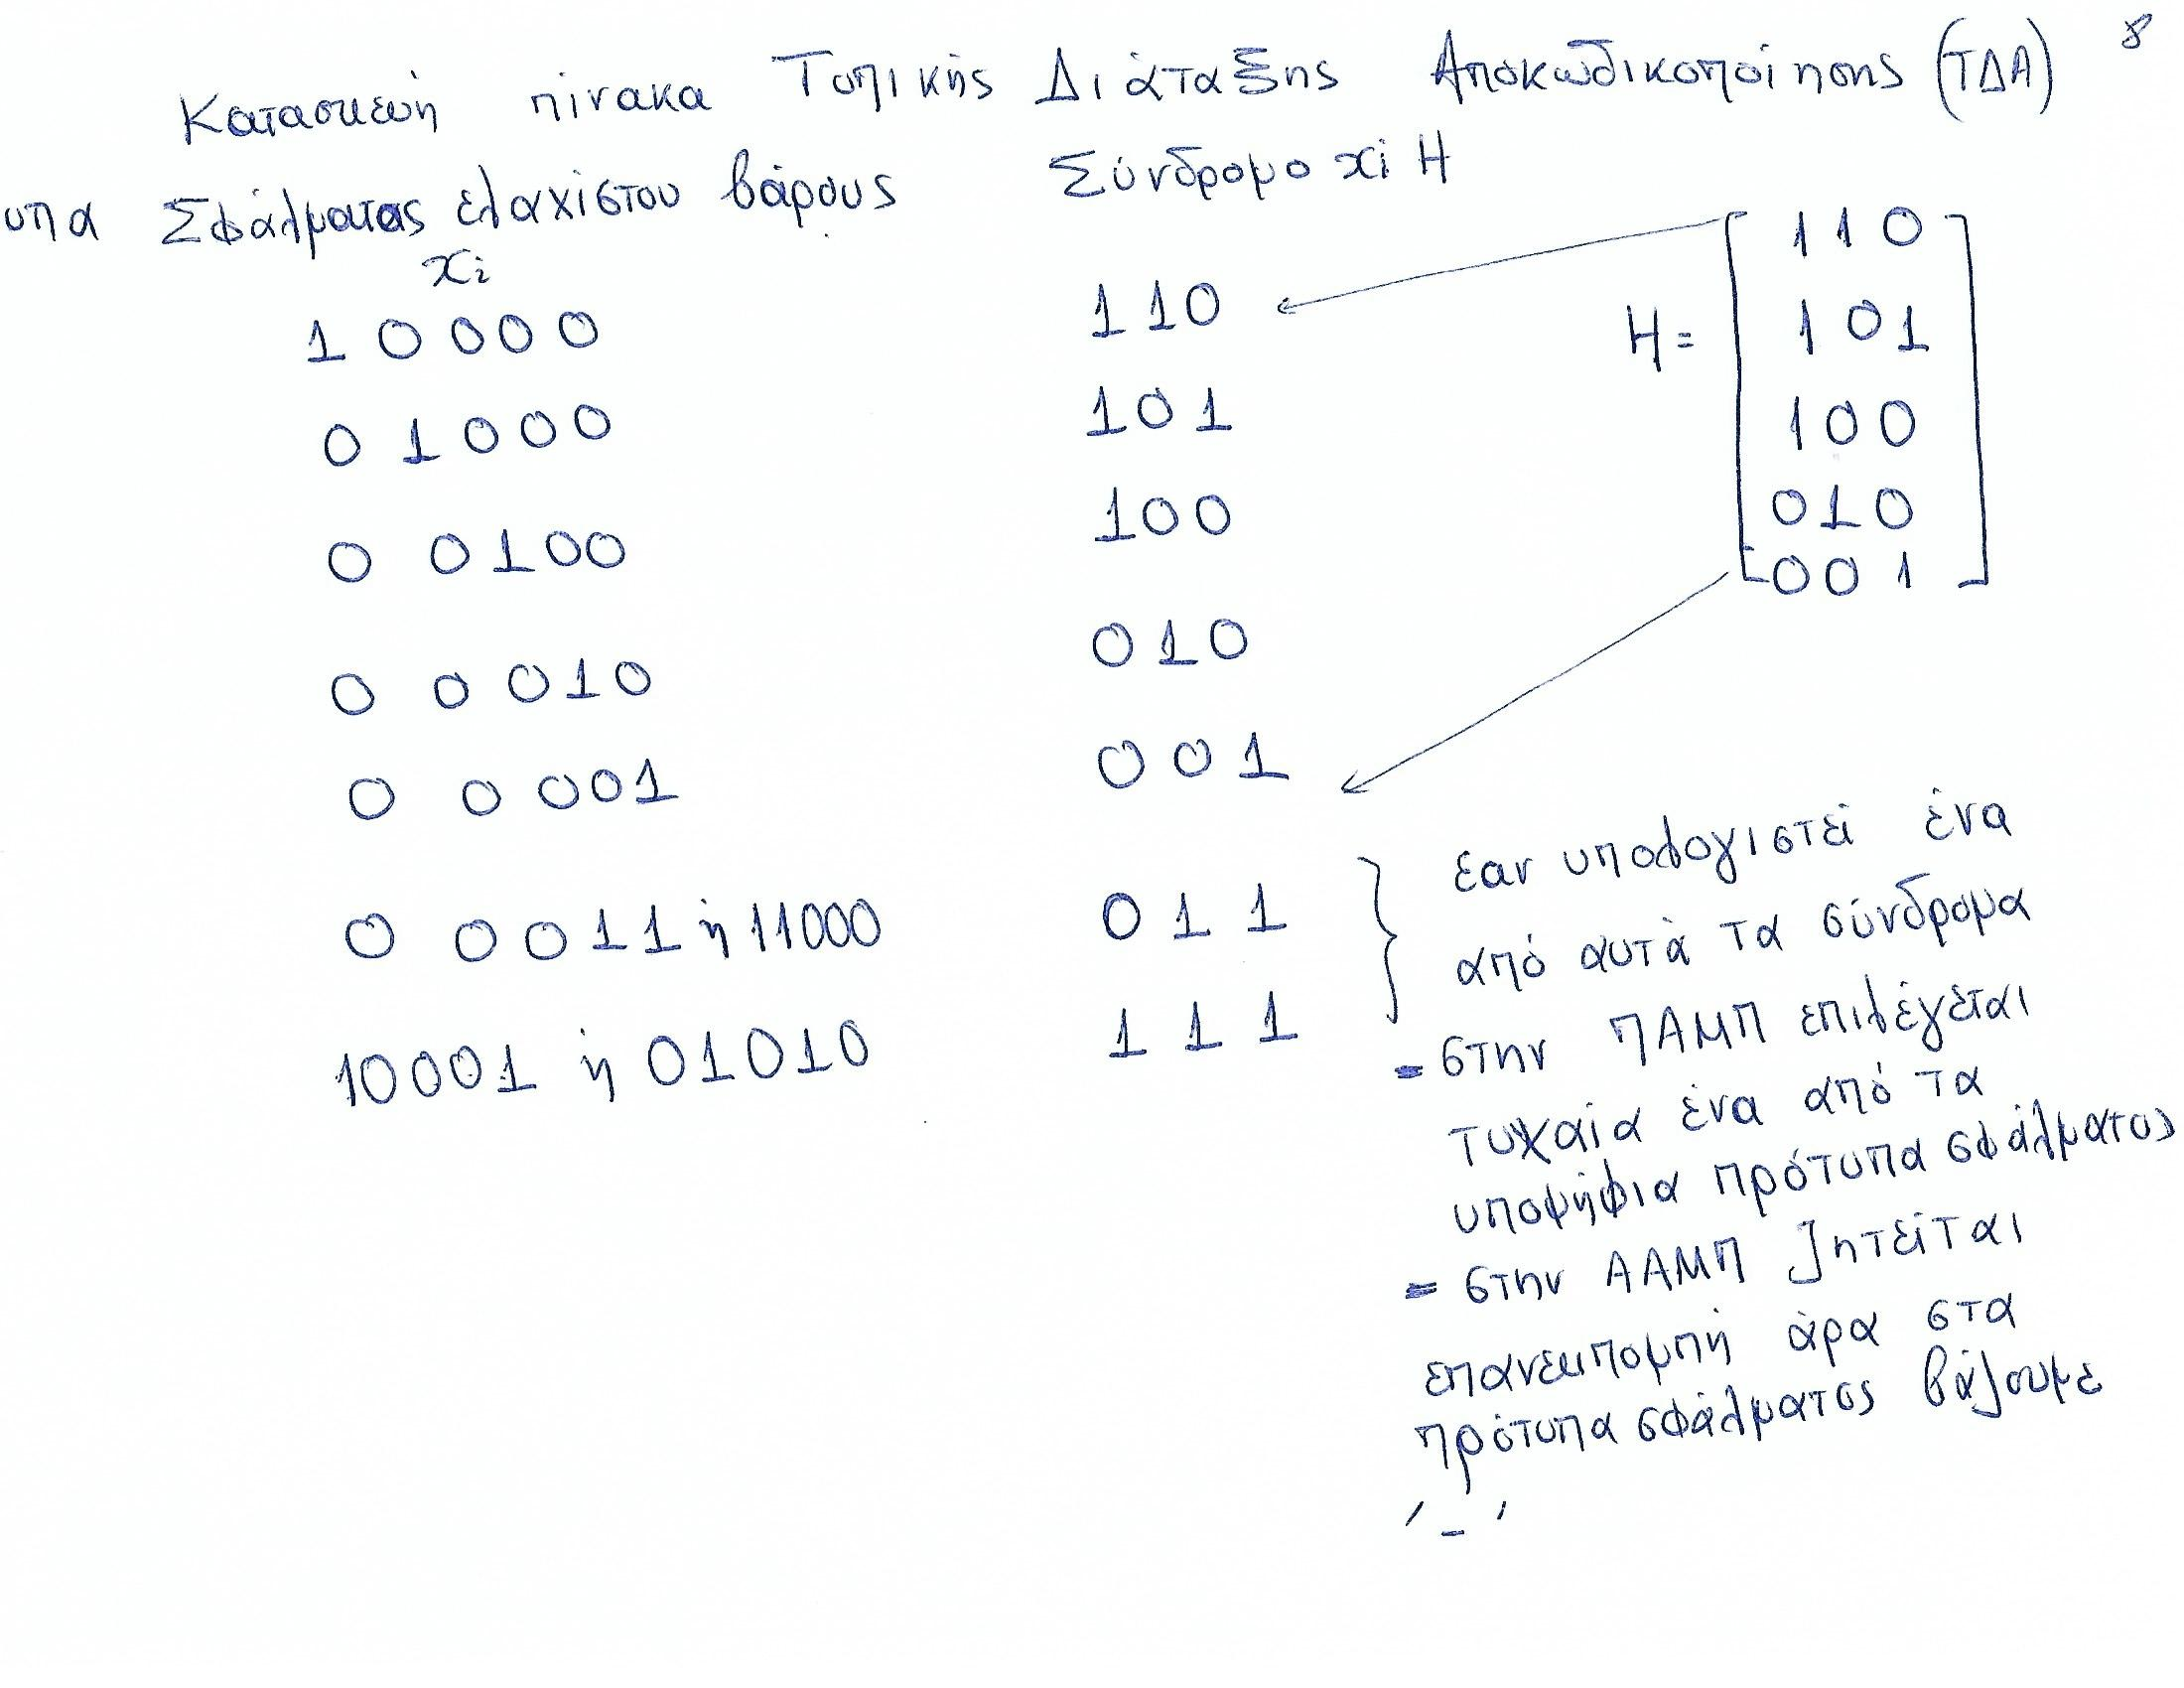 8
Κατασκευή πίνακα Τυπικής Διάταξης Αποκωδικοποίησης (ΤΔΑ)
υπα Σφάλματος ελαχίστου βάρους Σύνδρομο xi H
xi
1 0 0 0 0 1 1 0
0 1 0 0 0 1 0 1
0 0 1 0 0 1 0 0
0 0 0 1 0 0 1 0
0 0 0 0 1 0 0 1
0 0 0 1 1 ή 11000 0 1 1
10001 ή 01010 1 1 1
H =
1 1 0
1 0 1
1 0 0
0 1 0
0 0 1
εαν υπολογιστεί ένα
από αυτά τα σύνδρομα
- στην ΠΑΜΠ επιλέγεται
τυχαία ένα από τα
υποψήφια πρότυπα σφάλματος
- στην ΑΑΜΠ ζητείται
επανεκπομπή άρα στα
πρότυπα σφάλματος βάζουμε
'-'